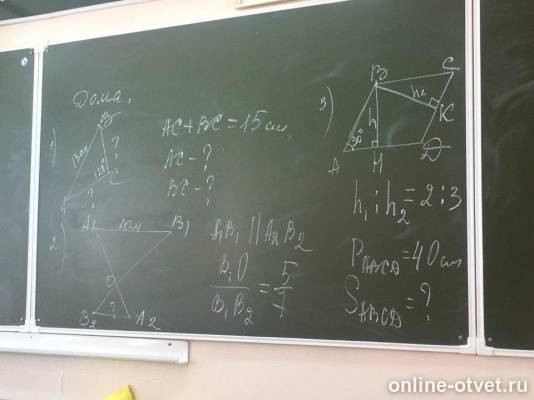 Дома.
1)
B
13см
?
120°
C
A
?
AC + BC = 15 см
AC - ?
BC - ?
2)
A₁
10см
B₁
O
B₂
?
A₂
A₁B₁ || A₂B₂
B₁O / B₁B₂ = 5 / 7
3)
B
C
h₂
K
h₁
30°
A
H
D
h₁ : h₂ = 2 : 3
P ABCD = 40 см
S ABCD = ?
online-otvet.ru